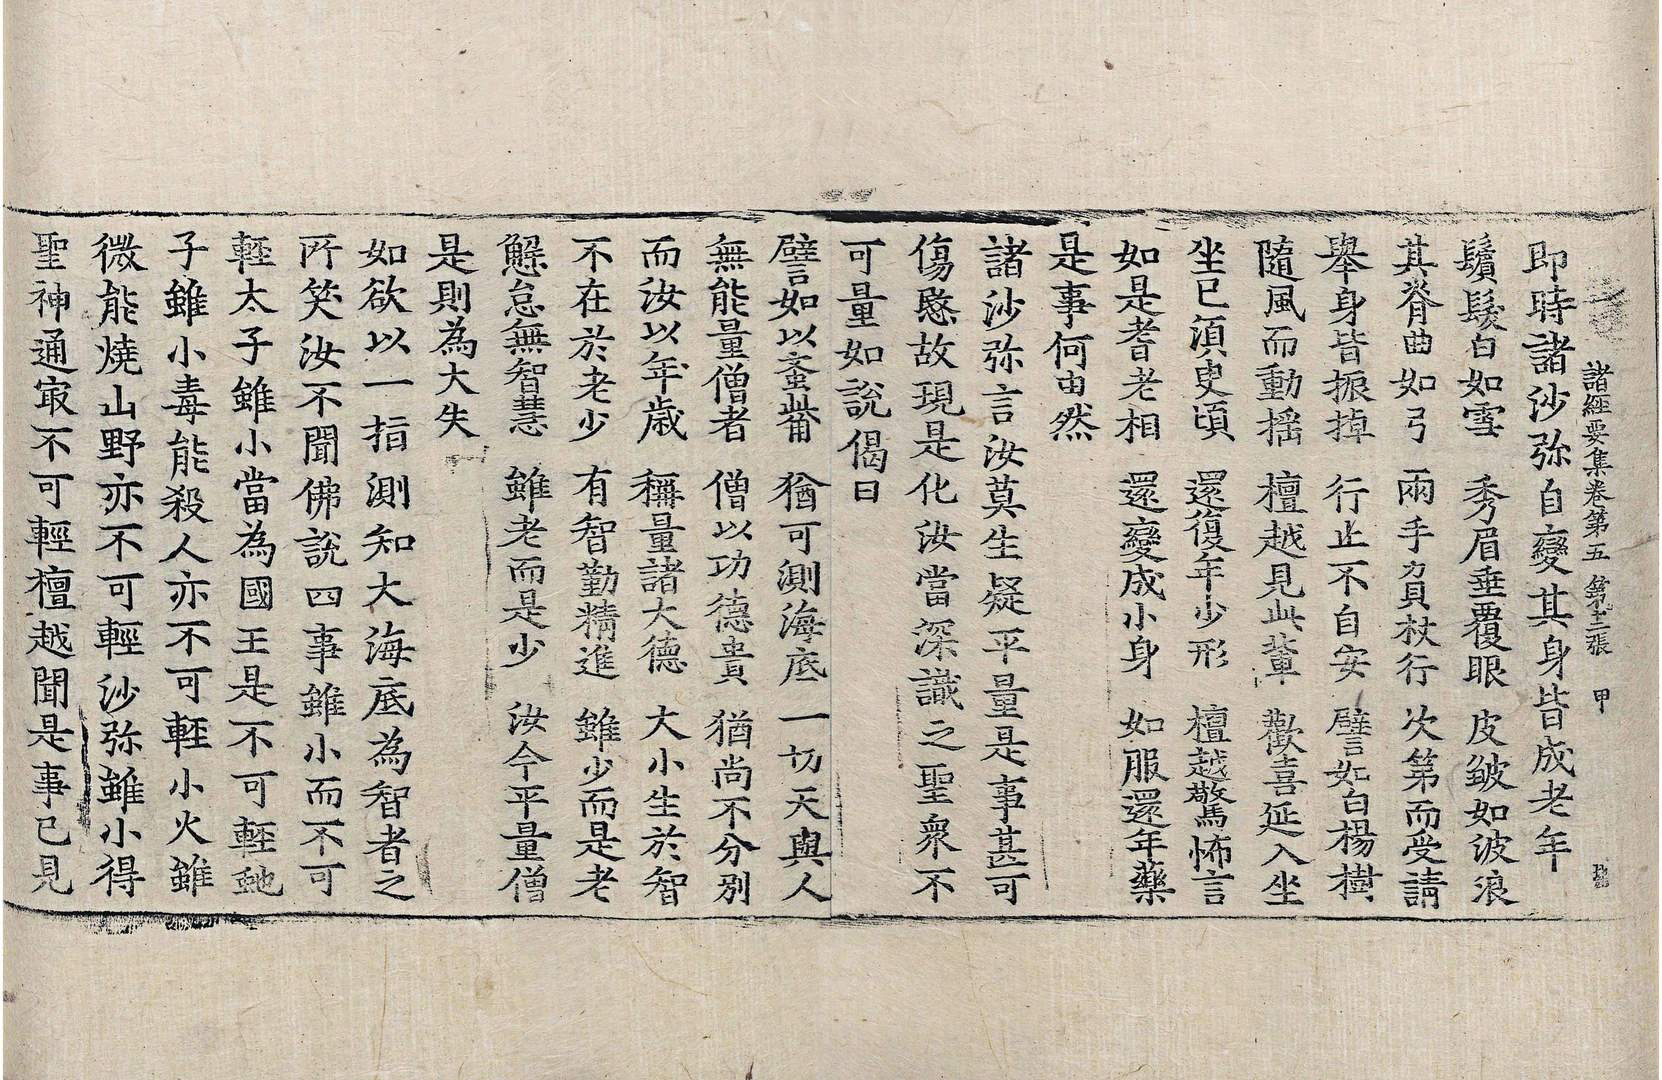 諸經要集卷第五 第十二張 甲
即時諸沙弥自變其身皆成老年
鬚髮白如雪 秀眉垂覆眼 皮皺如波浪
其脊曲如弓 兩手負杖行 次第而受請
舉身皆振掉 行止不自安 譬如白楊樹
隨風而動搖 檀越見此輩 歡喜延入坐
坐已須臾頃 還復年少形 檀越驚怖言
如是耆老相 還變成小身 如服還年藥
是事何由然
諸沙弥言汝莫生疑平量是事甚可
傷愍故現是化汝當深識之聖衆不
可量如說偈曰
譬如以蚉𭉨 猶可測海底 一切天與人
無能量僧者 僧以功德貴 猶尚不分別
而汝以年歲 稱量諸大德 大小生於智
不在於老少 有智勤精進 雖少而是老
懈怠無智慧 雖老而是少 汝今平量僧
是則為大失
如欲以一指測知大海底為智者之
所笑汝不聞佛說四事雖小而不可
輕太子雖小當為國王是不可輕虵
子雖小毒能殺人亦不可輕小火雖
微能燒山野亦不可輕沙弥雖小得
聖神通㝡不可輕檀越聞是事已見